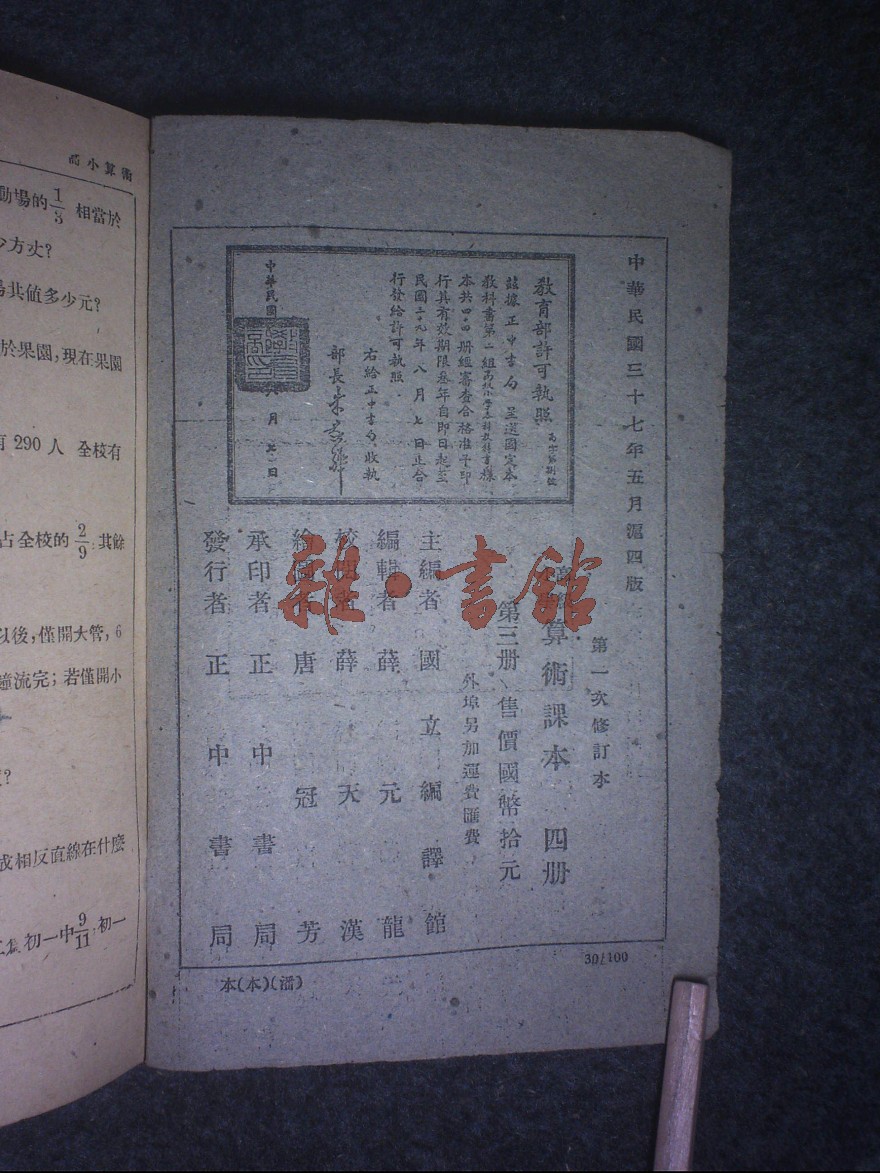 中華民國三十七年五月滬四版
第一次修訂本
算術課本 四册
第三册 售價國幣拾元
外埠另加運費匯費
主編者 國立編譯館
編輯者 薛元龍
校閱者 薛天漢
繪圖者 唐冠芳
承印者 正中書局
發行者 正中書局
教育部許可執照
茲據正中書局呈送國定本
教科書第一組
本共四十四册經審查合格准予印
行其有效期限叁年自即日起至
民國二十九年八月七日止合
行發給許可執照
右給正中書局收執
部長朱家驊
中華民國
月
日
30/100
本(本)(潘)
雜·書館
高小算術
動場的1/3 相當於
少方丈?
易共值多少元?
於果園,現在果園
有 290 人 全校有
占全校的 2/9 其餘
以後,僅開大管,6
鐘流完; 若僅開小
?
或相反直線在什麼
初一中9/11,初一